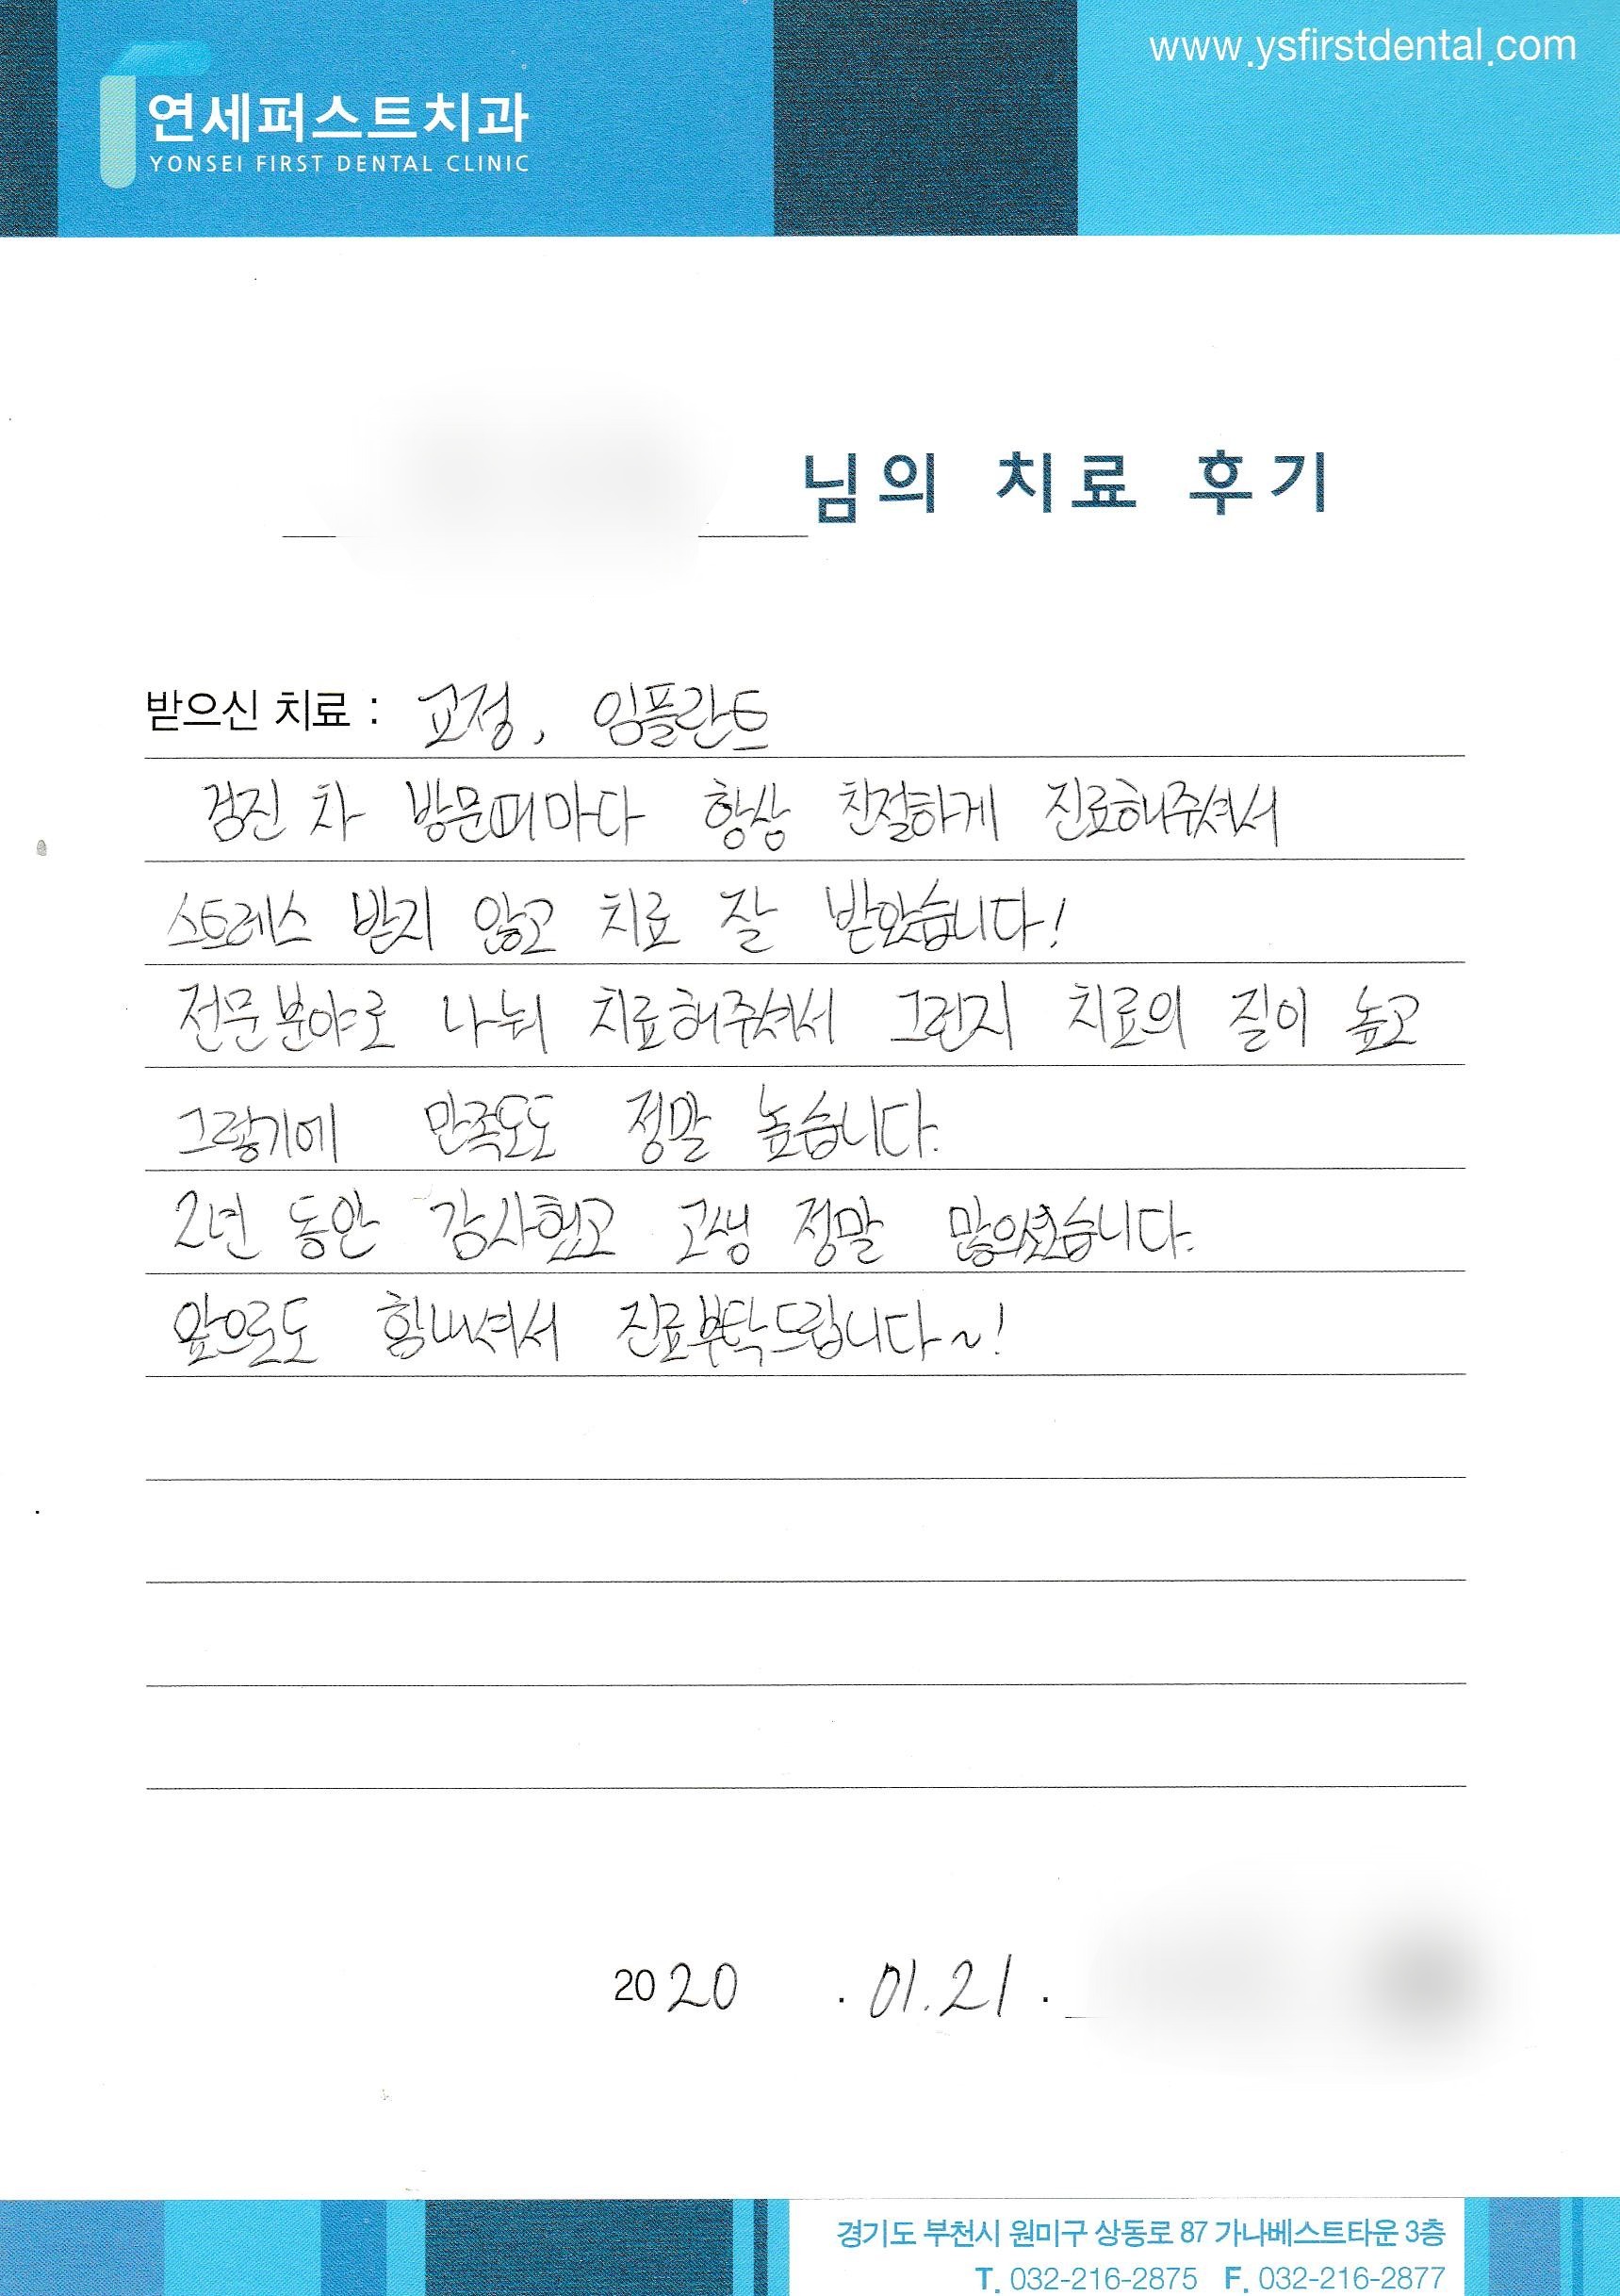 www.ysfirstdental.com
연세퍼스트치과
YONSEI FIRST DENTAL CLINIC
님의 치료 후기
받으신 치료 : 교정, 임플란트
검진 차 방문때마다 항상 친절하게 진료해주셔서
스트레스 받지 않고 치료 잘 받았습니다!
전문분야로 나눠 치료해주셔서 그런지 치료의 질이 높고
그렇기에 만족도도 정말 높습니다.
2년 동안 감사했고 고생 정말 많으셨습니다.
앞으로도 힘내셔서 진료부탁드립니다~!
2020 . 01.21 .
경기도 부천시 원미구 상동로 87 가나베스트타운 3층
T. 032-216-2875 F. 032-216-2877